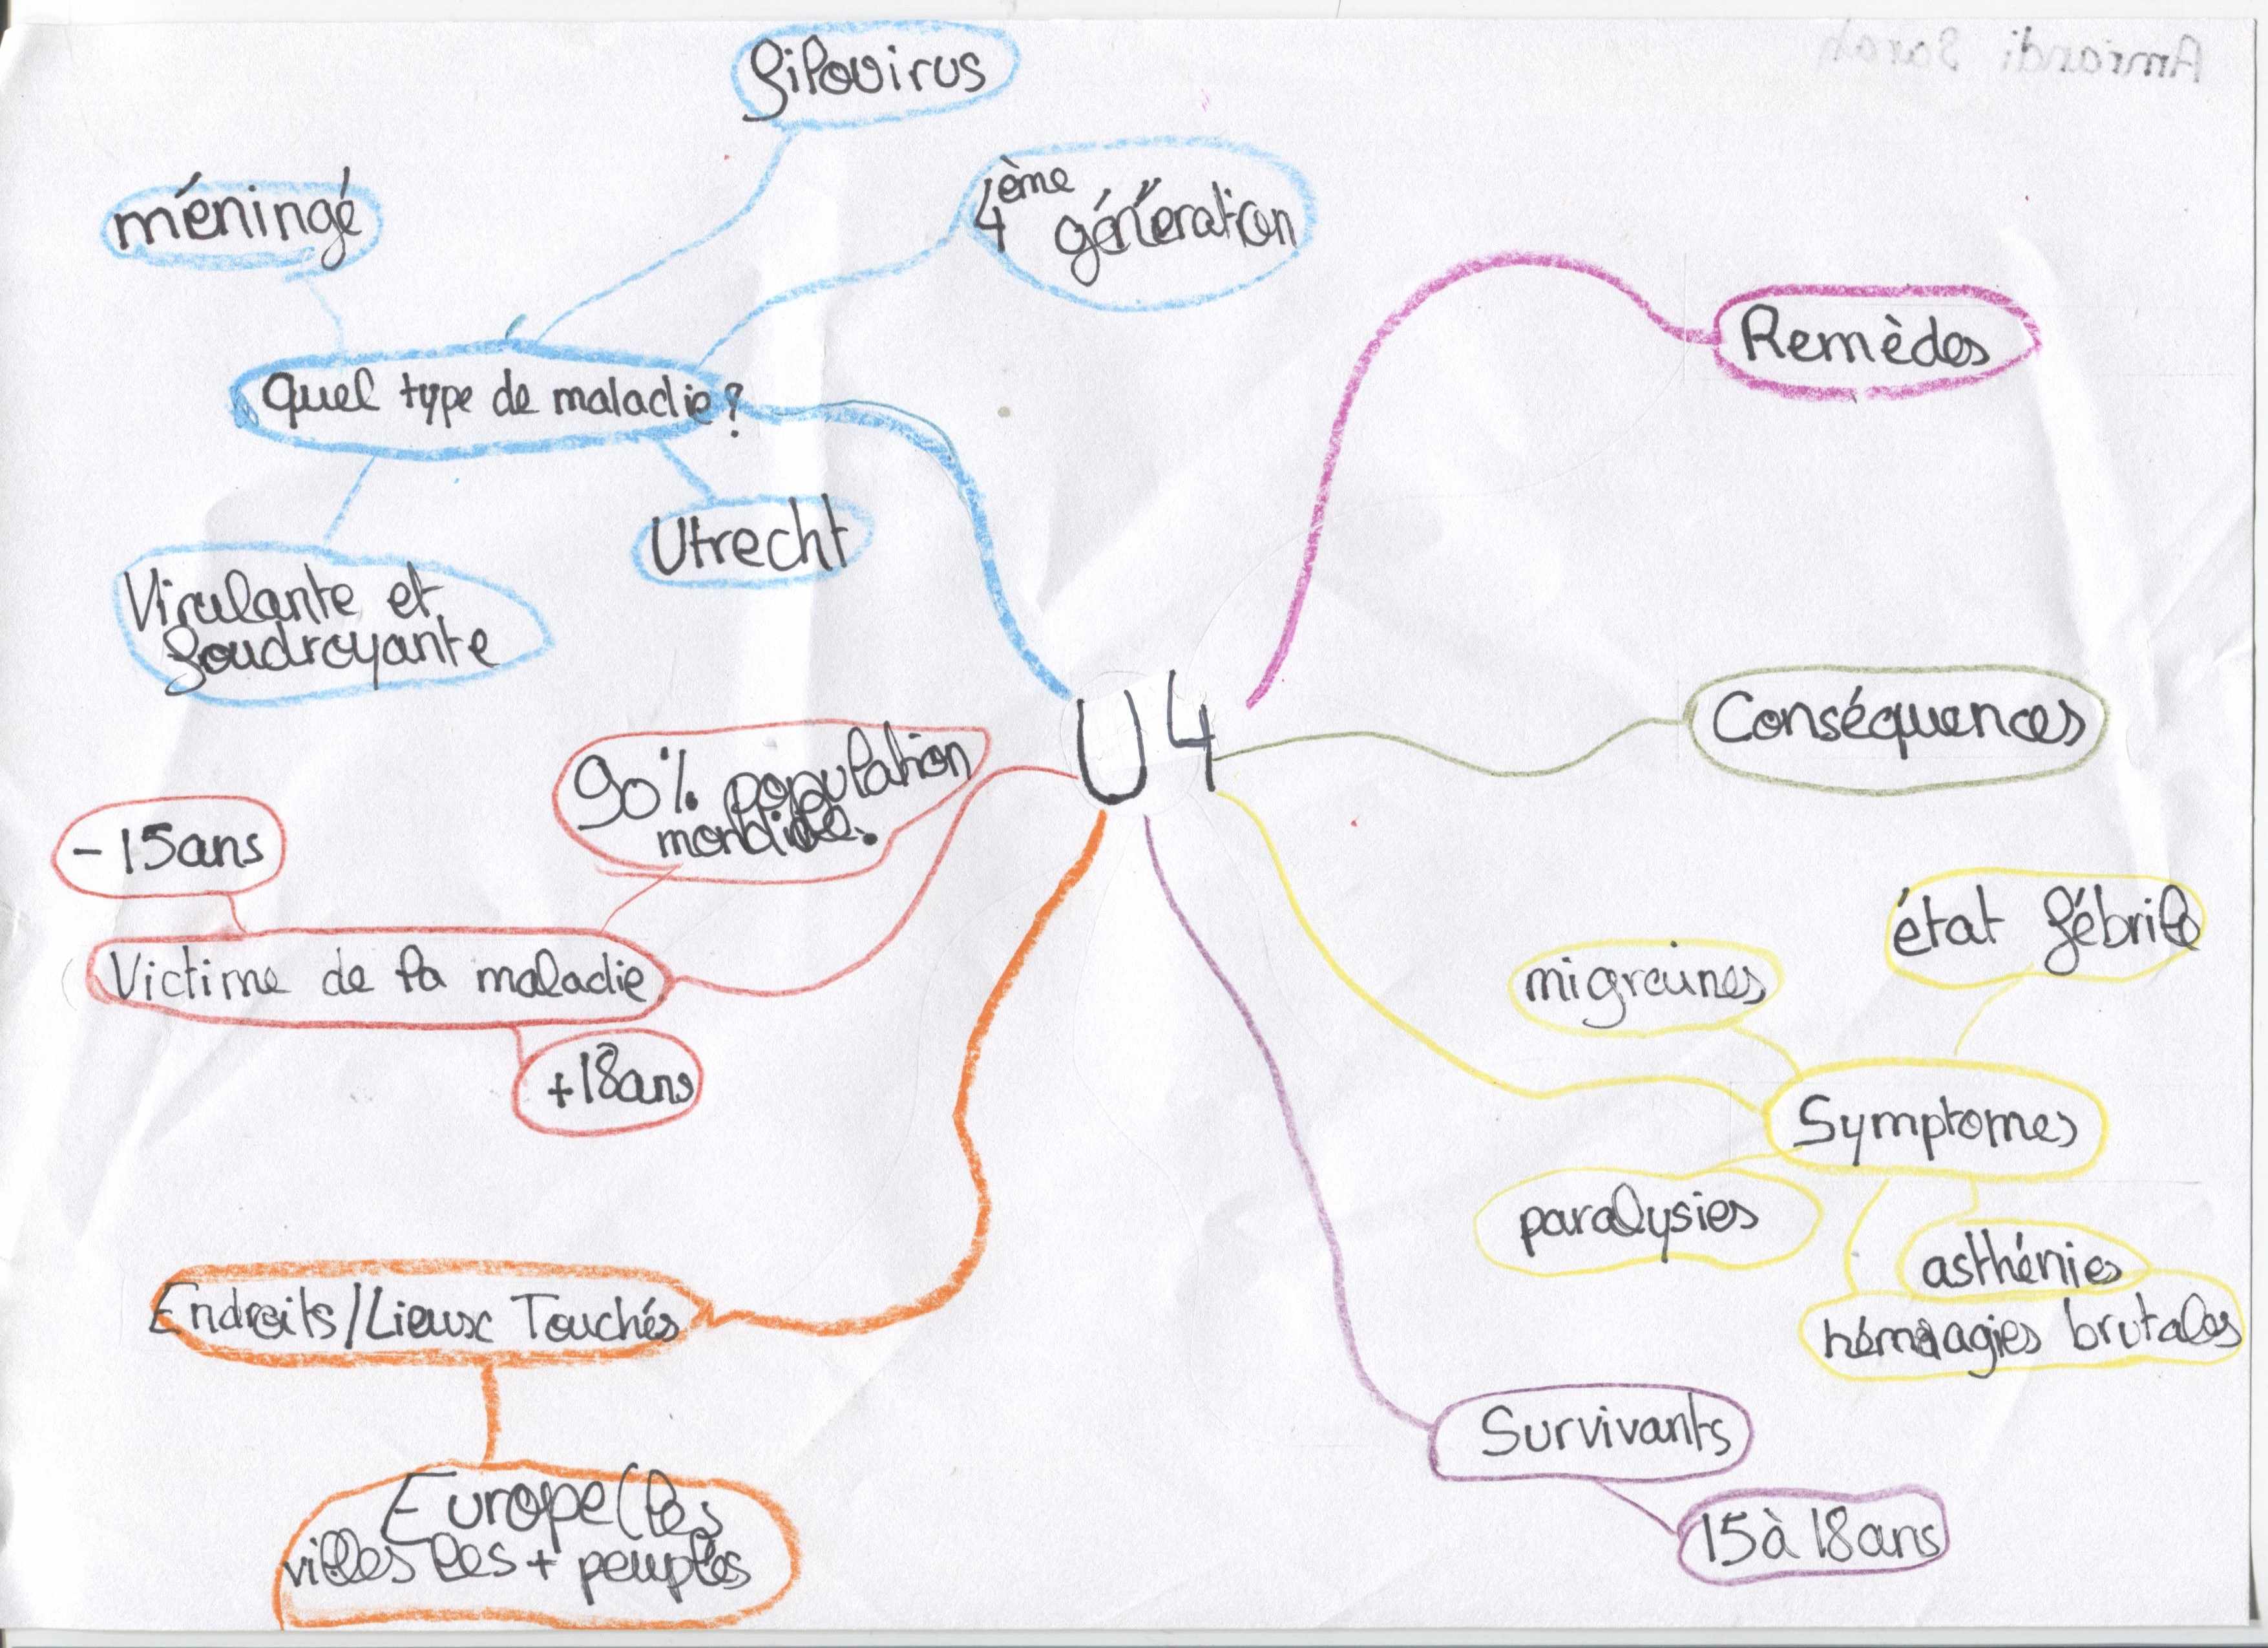 filovirus
4ème
génération
méningé
Quel type de maladie?
Utrecht
Virulante et
foudroyante
U4
Remèdes
Conséquences
90% population
mondiale.
-15ans
Victime de la maladie
+18ans
état fébrile
migraines
Symptomes
paralysies
asthénies
hémoragies brutales
Endroits/Lieux Touchés
Europe (les
villes les + peuplés
Survivants
15à 18ans